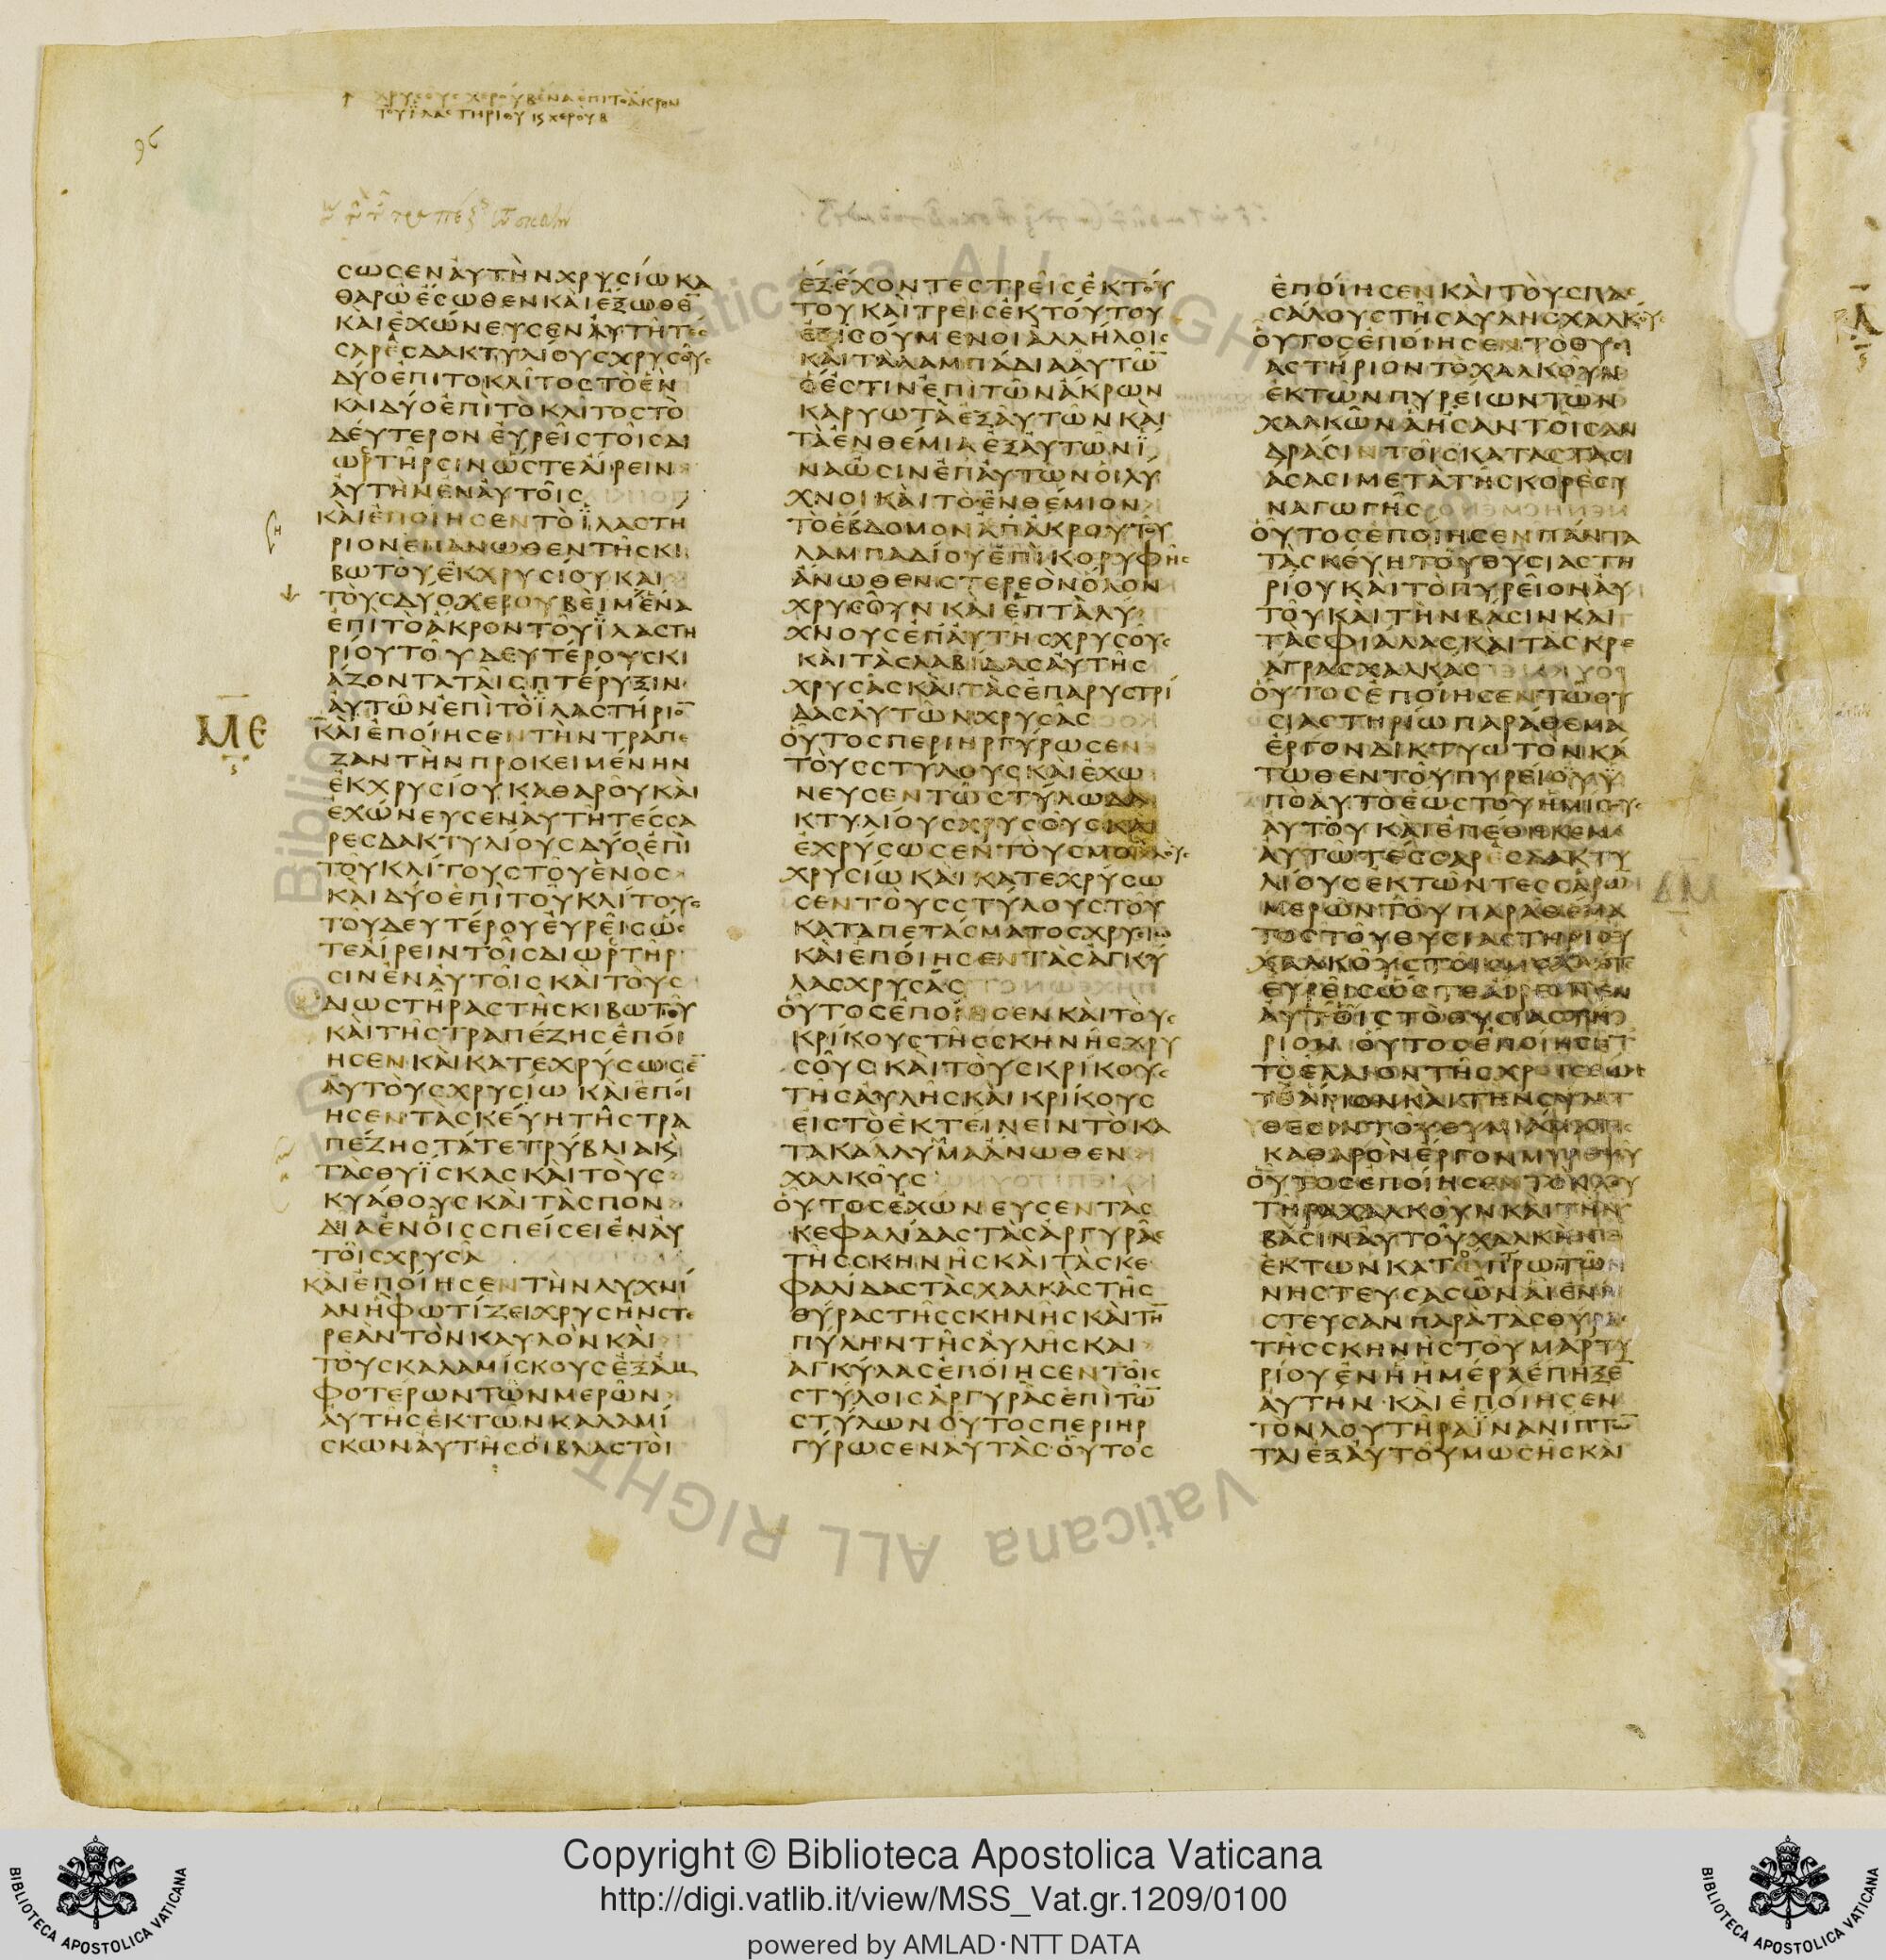 96
χρυσους χερουβ ενα επι το ακρον
του ϊλαστηριου ις χερουβ
ΣΩΣΕΝΑΥΤΗΝΧΡΥΣΙΩΚΑ
ΘΑΡΩΕΣΩΘΕΝΚΑΙΕΞΩΘΕ̅
ΚΑΙΕΧΩΝΕΥΣΕΝΑΥΤΗΤΕΣ
ΣΑΡΕΣΔΑΚΤΥΛΙΟΥΣΧΡΥΣΟΥΣ
ΔΥΟΕΠΙΤΟΚΛΙΤΟΣΤΟΕΝ
ΚΑΙΔΥΟΕΠΙΤΟΚΛΙΤΟΣΤΟ
ΔΕΥΤΕΡΟΝΕΥΡΕΙΣΤΟΙΣΔΙ
ΩΣΤΗΡΣΙΝΩΣΤΕΑΙΡΕΙΝ
ΑΥΤΗΝΕΝΑΥΤΟΙΣ
ΚΑΙΕΠΟΙΗΣΕΝΤΟΪΛΑΣΤΗ
ΡΙΟΝΕΠΑΝΩΘΕΝΤΗΣΚΙ
ΒΩΤΟΥΕΚΧΡΥΣΙΟΥΚΑΙ
ΤΟΥΣΔΥΟΧΕΡΟΥΒΕΙΜΕΝΑ
ΕΠΙΤΟΑΚΡΟΝΤΟΥΪΛΑΣΤΗ
ΡΙΟΥΤΟΥΔΕΥΤΕΡΟΥΣΚΙ
ΑΖΟΝΤΑΤΑΙΣΠΤΕΡΥΞΙΝ
ΑΥΤΩΝΕΠΙΤΟΪΛΑΣΤΗΡΙΟ̅
ΜΕ
ΚΑΙΕΠΟΙΗΣΕΝΤΗΝΤΡΑΠΕ
ΖΑΝΤΗΝΠΡΟΚΕΙΜΕΝΗΝ
ΕΚΧΡΥΣΙΟΥΚΑΘΑΡΟΥΚΑΙ
ΕΧΩΝΕΥΣΕΝΑΥΤΗΤΕΣΣΑ
ΡΕΣΔΑΚΤΥΛΙΟΥΣΔΥΟΕΠΙ
ΤΟΥΚΛΙΤΟΥΣΤΟΥΕΝΟΣ
ΚΑΙΔΥΟΕΠΙΤΟΥΚΛΙΤΟΥΣ
ΤΟΥΔΕΥΤΕΡΟΥΕΥΡΕΙΣΩΣ
ΤΕΑΙΡΕΙΝΤΟΙΣΔΙΩΣΤΗΡ
ΣΙΝΕΝΑΥΤΟΙΣΚΑΙΤΟΥΣ
ΔΙΩΣΤΗΡΑΣΤΗΣΚΙΒΩΤΟΥ
ΚΑΙΤΗΣΤΡΑΠΕΖΗΣΕΠΟΙ
ΗΣΕΝΚΑΙΚΑΤΕΧΡΥΣΩΣΕ̅
ΑΥΤΟΥΣΧΡΥΣΙΩΚΑΙΕΠΟΙ
ΗΣΕΝΤΑΣΚΕΥΗΤΗΣΤΡΑ
ΠΕΖΗΣΤΑΤΕΤΡΥΒΛΙΑΚΑΙ
ΤΑΣΘΥΪΣΚΑΣΚΑΙΤΟΥΣ
ΚΥΑΘΟΥΣΚΑΙΤΑΣΠΟΝ
ΔΙΑΕΝΟΙΣΣΠΕΙΣΕΙΕΝΑΥ
ΤΟΙΣΧΡΥΣΑ
ΚΑΙΕΠΟΙΗΣΕΝΤΗΝΛΥΧΝΙ
ΑΝΗΦΩΤΙΖΕΙΧΡΥΣΗΝΣΤΕ
ΡΕΑΝΤΟΝΚΑΥΛΟΝΚΑΙ
ΤΟΥΣΚΑΛΑΜΙΣΚΟΥΣΕΞΑΜ
ΦΟΤΕΡΩΝΤΩΝΜΕΡΩΝ
ΑΥΤΗΣΕΚΤΩΝΚΑΛΑΜΙ
ΣΚΩΝΑΥΤΗΣΟΙΒΛΑΣΤΟΙ
ΕΞΕΧΟΝΤΕΣΤΡΕΙΣΕΚΤΟΥ
ΤΟΥΚΑΙΤΡΕΙΣΕΚΤΟΥΤΟΥ
ΕΞΙΣΟΥΜΕΝΟΙΑΛΛΗΛΟΙΣ
ΚΑΙΤΑΛΑΜΠΑΔΙΑΑΥΤΩ̅
ΟΕΣΤΙΝΕΠΙΤΩΝΑΚΡΩΝ
ΚΑΡΥΩΤΑΕΞΑΥΤΩΝΚΑΙ
ΤΑΕΝΘΕΜΙΑΕΞΑΥΤΩΝΪ
ΝΑΩΣΙΝΕΠΑΥΤΩΝΟΙΛΥ
ΧΝΟΙΚΑΙΤΟΕΝΘΕΜΙΟΝ
ΤΟΕΒΔΟΜΟΝΑΠΑΚΡΟΥΤΟΥ
ΛΑΜΠΑΔΙΟΥΕΠΙΚΟΡΥΦΗΣ
ΑΝΩΘΕΝΣΤΕΡΕΟΝΟΛΟΝ
ΧΡΥΣΟΥΝΚΑΙΕΠΤΑΛΥ
ΧΝΟΥΣΕΠΑΥΤΗΣΧΡΥΣΟΥΣ
ΚΑΙΤΑΣΛΑΒΙΔΑΣΑΥΤΗΣ
ΧΡΥΣΑΣΚΑΙΤΑΣΕΠΑΡΥΣΤΡΙ
ΔΑΣΑΥΤΩΝΧΡΥΣΑΣ
ΟΥΤΟΣΠΕΡΙΗΡΓΥΡΩΣΕΝ
ΤΟΥΣΣΤΥΛΟΥΣΚΑΙΕΧΩ
ΝΕΥΣΕΝΤΩΣΤΥΛΩΔΑ
ΚΤΥΛΙΟΥΣΧΡΥΣΟΥΣΚΑΙ
ΕΧΡΥΣΩΣΕΝΤΟΥΣΜΟΧΛΟΥΣ
ΧΡΥΣΙΩΚΑΙΚΑΤΕΧΡΥΣΩ
ΣΕΝΤΟΥΣΣΤΥΛΟΥΣΤΟΥ
ΚΑΤΑΠΕΤΑΣΜΑΤΟΣΧΡΥΣΙΩ
ΚΑΙΕΠΟΙΗΣΕΝΤΑΣΑΓΚΥ
ΛΑΣΧΡΥΣΑΣ
ΟΥΤΟΣΕΠΟΙΗΣΕΝΚΑΙΤΟΥΣ
ΚΡΙΚΟΥΣΤΗΣΣΚΗΝΗΣΧΡΥ
ΣΟΥΣΚΑΙΤΟΥΣΚΡΙΚΟΥΣ
ΤΗΣΑΥΛΗΣΚΑΙΚΡΙΚΟΥΣ
ΕΙΣΤΟΕΚΤΕΙΝΕΙΝΤΟΚΑ
ΤΑΚΑΛΥΜΜΑΑΝΩΘΕΝ
ΧΑΛΚΟΥΣ
ΟΥΤΟΣΕΧΩΝΕΥΣΕΝΤΑΣ
ΚΕΦΑΛΙΔΑΣΤΑΣΑΡΓΥΡΑΣ
ΤΗΣΣΚΗΝΗΣΚΑΙΤΑΣΚΕ
ΦΑΛΙΔΑΣΤΑΣΧΑΛΚΑΣΤΗΣ
ΘΥΡΑΣΤΗΣΣΚΗΝΗΣΚΑΙΤΗ̅
ΠΥΛΗΝΤΗΣΑΥΛΗΣΚΑΙ
ΑΓΚΥΛΑΣΕΠΟΙΗΣΕΝΤΟΙΣ
ΣΤΥΛΟΙΣΑΡΓΥΡΑΣΕΠΙΤΩ̅
ΣΤΥΛΩΝΟΥΤΟΣΠΕΡΙΗΡ
ΓΥΡΩΣΕΝΑΥΤΑΣΟΥΤΟΣ
ΕΠΟΙΗΣΕΝΚΑΙΤΟΥΣΠΑΣ
ΣΑΛΟΥΣΤΗΣΑΥΛΗΣΧΑΛΚΟΥΣ
ΟΥΤΟΣΕΠΟΙΗΣΕΝΤΟΘΥΣΙ
ΑΣΤΗΡΙΟΝΤΟΧΑΛΚΟΥΝ
ΕΚΤΩΝΠΥΡΕΙΩΝΤΩΝ
ΧΑΛΚΩΝΑΗΣΑΝΤΟΙΣΑΝ
ΔΡΑΣΙΝΤΟΙΣΚΑΤΑΣΤΑΣΙ
ΑΣΑΣΙΜΕΤΑΤΗΣΚΟΡΕΣΥ
ΝΑΓΩΓΗΣ
ΟΥΤΟΣΕΠΟΙΗΣΕΝΠΑΝΤΑ
ΤΑΣΚΕΥΗΤΟΥΘΥΣΙΑΣΤΗ
ΡΙΟΥΚΑΙΤΟΠΥΡΕΙΟΝΑΥ
ΤΟΥΚΑΙΤΗΝΒΑΣΙΝΚΑΙ
ΤΑΣΦΙΑΛΑΣΚΑΙΤΑΣΚΡΕ
ΑΓΡΑΣΧΑΛΚΑΣ
ΟΥΤΟΣΕΠΟΙΗΣΕΝΤΩΘΥ
ΣΙΑΣΤΗΡΙΩΠΑΡΑΘΕΜΑ
ΕΡΓΟΝΔΙΚΤΥΩΤΟΝΚΑ
ΤΩΘΕΝΤΟΥΠΥΡΕΙΟΥΫ
ΠΟΑΥΤΟΕΩΣΤΟΥΗΜΙΣΥΣ
ΑΥΤΟΥΚΑΙΕΠΕΘΗΚΕΝ
ΑΥΤΩΤΕΣΣΑΡΕΣΔΑΚΤΥ
ΛΙΟΥΣΕΚΤΩΝΤΕΣΣΑΡΩ
ΜΕΡΩΝΤΟΥΠΑΡΑΘΕΜΑ
ΤΟΣΤΟΥΘΥΣΙΑΣΤΗΡΙΟΥ
ΧΑΛΚΟΥΣΤΟΙΣΜΟΧΛΟΙΣ
ΕΥΡΕΙΣΩΣΤΕΑΙΡΕΙΝΕΝ
ΑΥΤΟΙΣΤΟΘΥΣΙΑΣΤΗ
ΡΙΟΝΟΥΤΟΣΕΠΟΙΗΣΕ
ΤΟΕΛΑΙΟΝΤΗΣΧΡΙΣΕΩΣ
ΤΟΑΓΙΟΝΚΑΙΤΗΝΣΥΝ
ΘΕΣΙΝΤΟΥΘΥΜΙΑΜΑΤΟΣ
ΚΑΘΑΡΟΝΕΡΓΟΝΜΥΡΕΨΟΥ
ΟΥΤΟΣΕΠΟΙΗΣΕΝΤΟΝΛΟΥ
ΤΗΡΑΧΑΛΚΟΥΝΚΑΙΤΗΝ
ΒΑΣΙΝΑΥΤΟΥΧΑΛΚΗΝ
ΕΚΤΩΝΚΑΤΟΠΤΡΩΝΤΩΝ
ΝΗΣΤΕΥΣΑΣΩΝΑΙΕΝΗ
ΣΤΕΥΣΑΝΠΑΡΑΤΑΣΘΥΡΑΣ
ΤΗΣΣΚΗΝΗΣΤΟΥΜΑΡΤΥ
ΡΙΟΥΕΝΗΗΜΕΡΑΕΠΗΞΕ̅
ΑΥΤΗΝΚΑΙΕΠΟΙΗΣΕΝ
ΤΟΝΛΟΥΤΗΡΑΪΝΑΝΙΠΤΩ̅
ΤΑΙΕΞΑΥΤΟΥΜΩΣΗΣΚΑΙ
Copyright © Biblioteca Apostolica Vaticana
http://digi.vatlib.it/view/MSS_Vat.gr.1209/0100
powered by AMLAD·NTT DATA
BIBLIOTECA APOSTOLICA VATICANA
BIBLIOTECA APOSTOLICA VATICANA